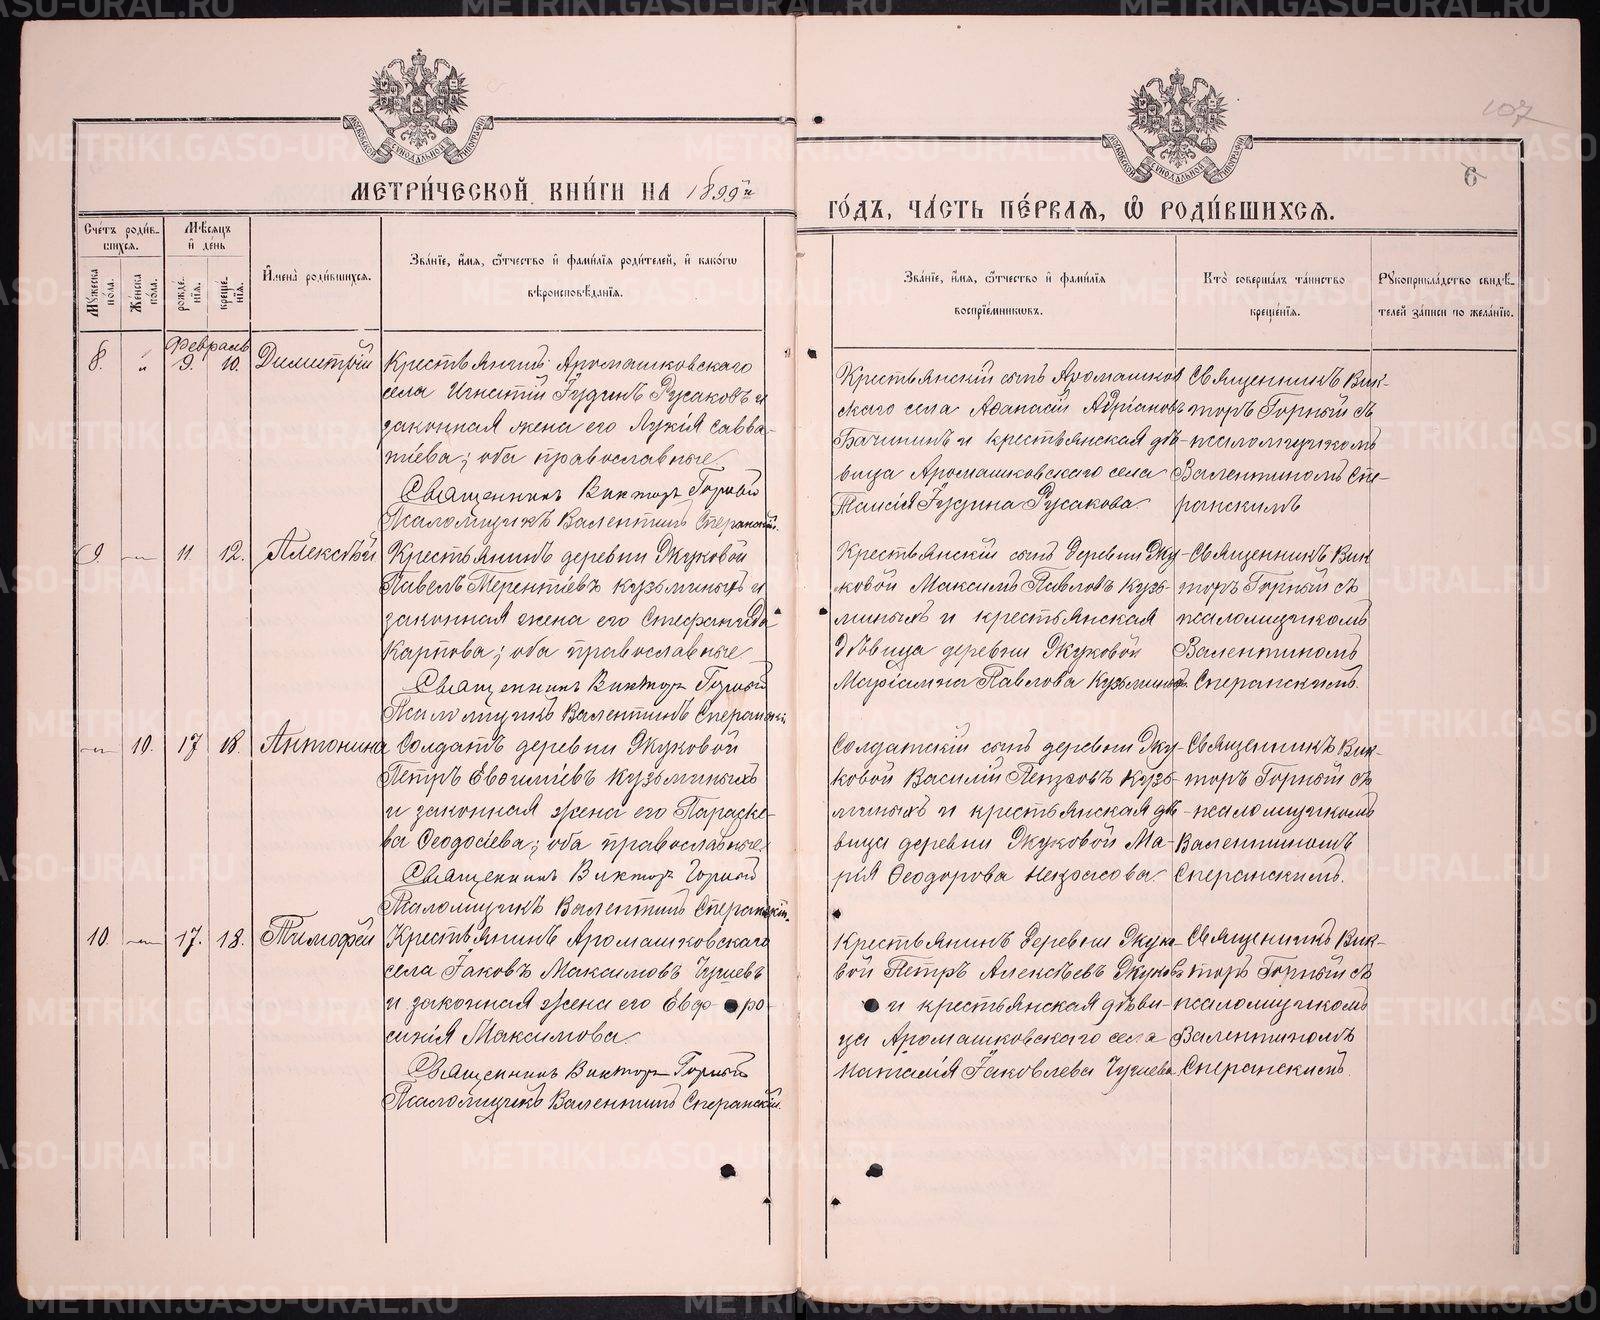 107
6
МЕТРИ́ЧЕСКОЙ КНИ́ГИ НА 1899й
ГО́ДЪ, ЧА́СТЬ ПЕ́РВАЯ, Ѿ РОДИ́ВШИХСЯ.
Сче́тъ роди́в-
шихся.
Мѣ́сяцъ
и҆ де́нь
Мꙋ́жеска
по́ла.
Же́нска
по́ла.
рожде́-
нїя.
креще́-
нїя.
И҆мена̀ роди́вшихся.
Зва́нїе, и҆́мя, ѻ҆́тчество и҆ фами́лїя роди́телей, и҆ како́гѡ
вѣроисповѣ́данїя.
Зва́нїе, и҆́мя, ѻ҆́тчество и҆ фами́лїя
воспрїе́мникѡвъ.
Кто̀ соверша́лъ та́инство
креще́нїя.
Рꙋкоприкла́дство свидѣ́-
телей за́писи по жела́нїю.
Февраль
8. " 9. 10. Димитрій
Крестьянинъ Аромашковскаго
села Игнатій Іудинъ Русаковъ и
законная жена его Лукія Савва-
тіева; оба православные
Священникъ Викторъ Горный
Псаломщикъ Валентинъ Сперанскій.
Крестьянскій сынъ Аромашков
скаго села Аѳанасій Адріановъ
Бачининъ и крестьянская дѣ-
вица Аромашковскаго села
Таисія Іудина Русакова
Священникъ Вик-
торъ Горный съ
псаломщикомъ
Валентиномъ Спе-
ранскимъ
9. " 11 12. Алексѣй
Крестьянинъ деревни Жуковой
Павелъ Терентіевъ Кузьминыхъ и
законная жена его Стефанида
Карпова; оба православные
Священникъ Викторъ Горный
Псаломщикъ Валентинъ Сперанскій
Крестьянскій сынъ деревни Жу-
ковой Максимъ Павловъ Кузь-
миныхъ и крестьянская
дѣвица деревни Жуковой
Маріамна Павлова Кузьминыхъ.
Священникъ Вик
торъ Горный съ
псаломщикомъ
Валентиномъ
Сперанскимъ.
" 10. 17 18. Антонина
Солдатъ деревни Жуковой
Петръ Евѳиміевъ Кузьминыхъ
и законная жена его Параске-
ва Ѳеодосіева; оба православные
Священникъ Викторъ Горный
Псаломщикъ Валентинъ Сперанскій.
Солдатскій сынъ деревни Жу-
ковой Василій Петровъ Кузь-
миныхъ и крестьянская дѣ-
вица деревни Жуковой Ма-
рія Ѳеодорова
Священникъ Вик-
торъ Горный съ
псаломщикомъ
Валентиномъ
Сперанскимъ.
10. " 17. 18. Тимоѳей
Крестьянинъ Аромашковскаго
села Іаковъ Максимовъ Чугиевъ
и законная жена его Евф ро-
синія Максимова
Священникъ Викторъ Горный
Псаломщикъ Валентинъ Сперанскій.
Крестьянинъ деревни Жуко-
вой Петръ Алексѣевъ Жуковъ
и крестьянская дѣви-
ца Аромашковскаго села
Наталія Іаковлева Чугиева
Священникъ Вик-
торъ Горный съ
псаломщикомъ
Валентиномъ
Сперанскимъ.
METRIKI.GASO-URAL.RU